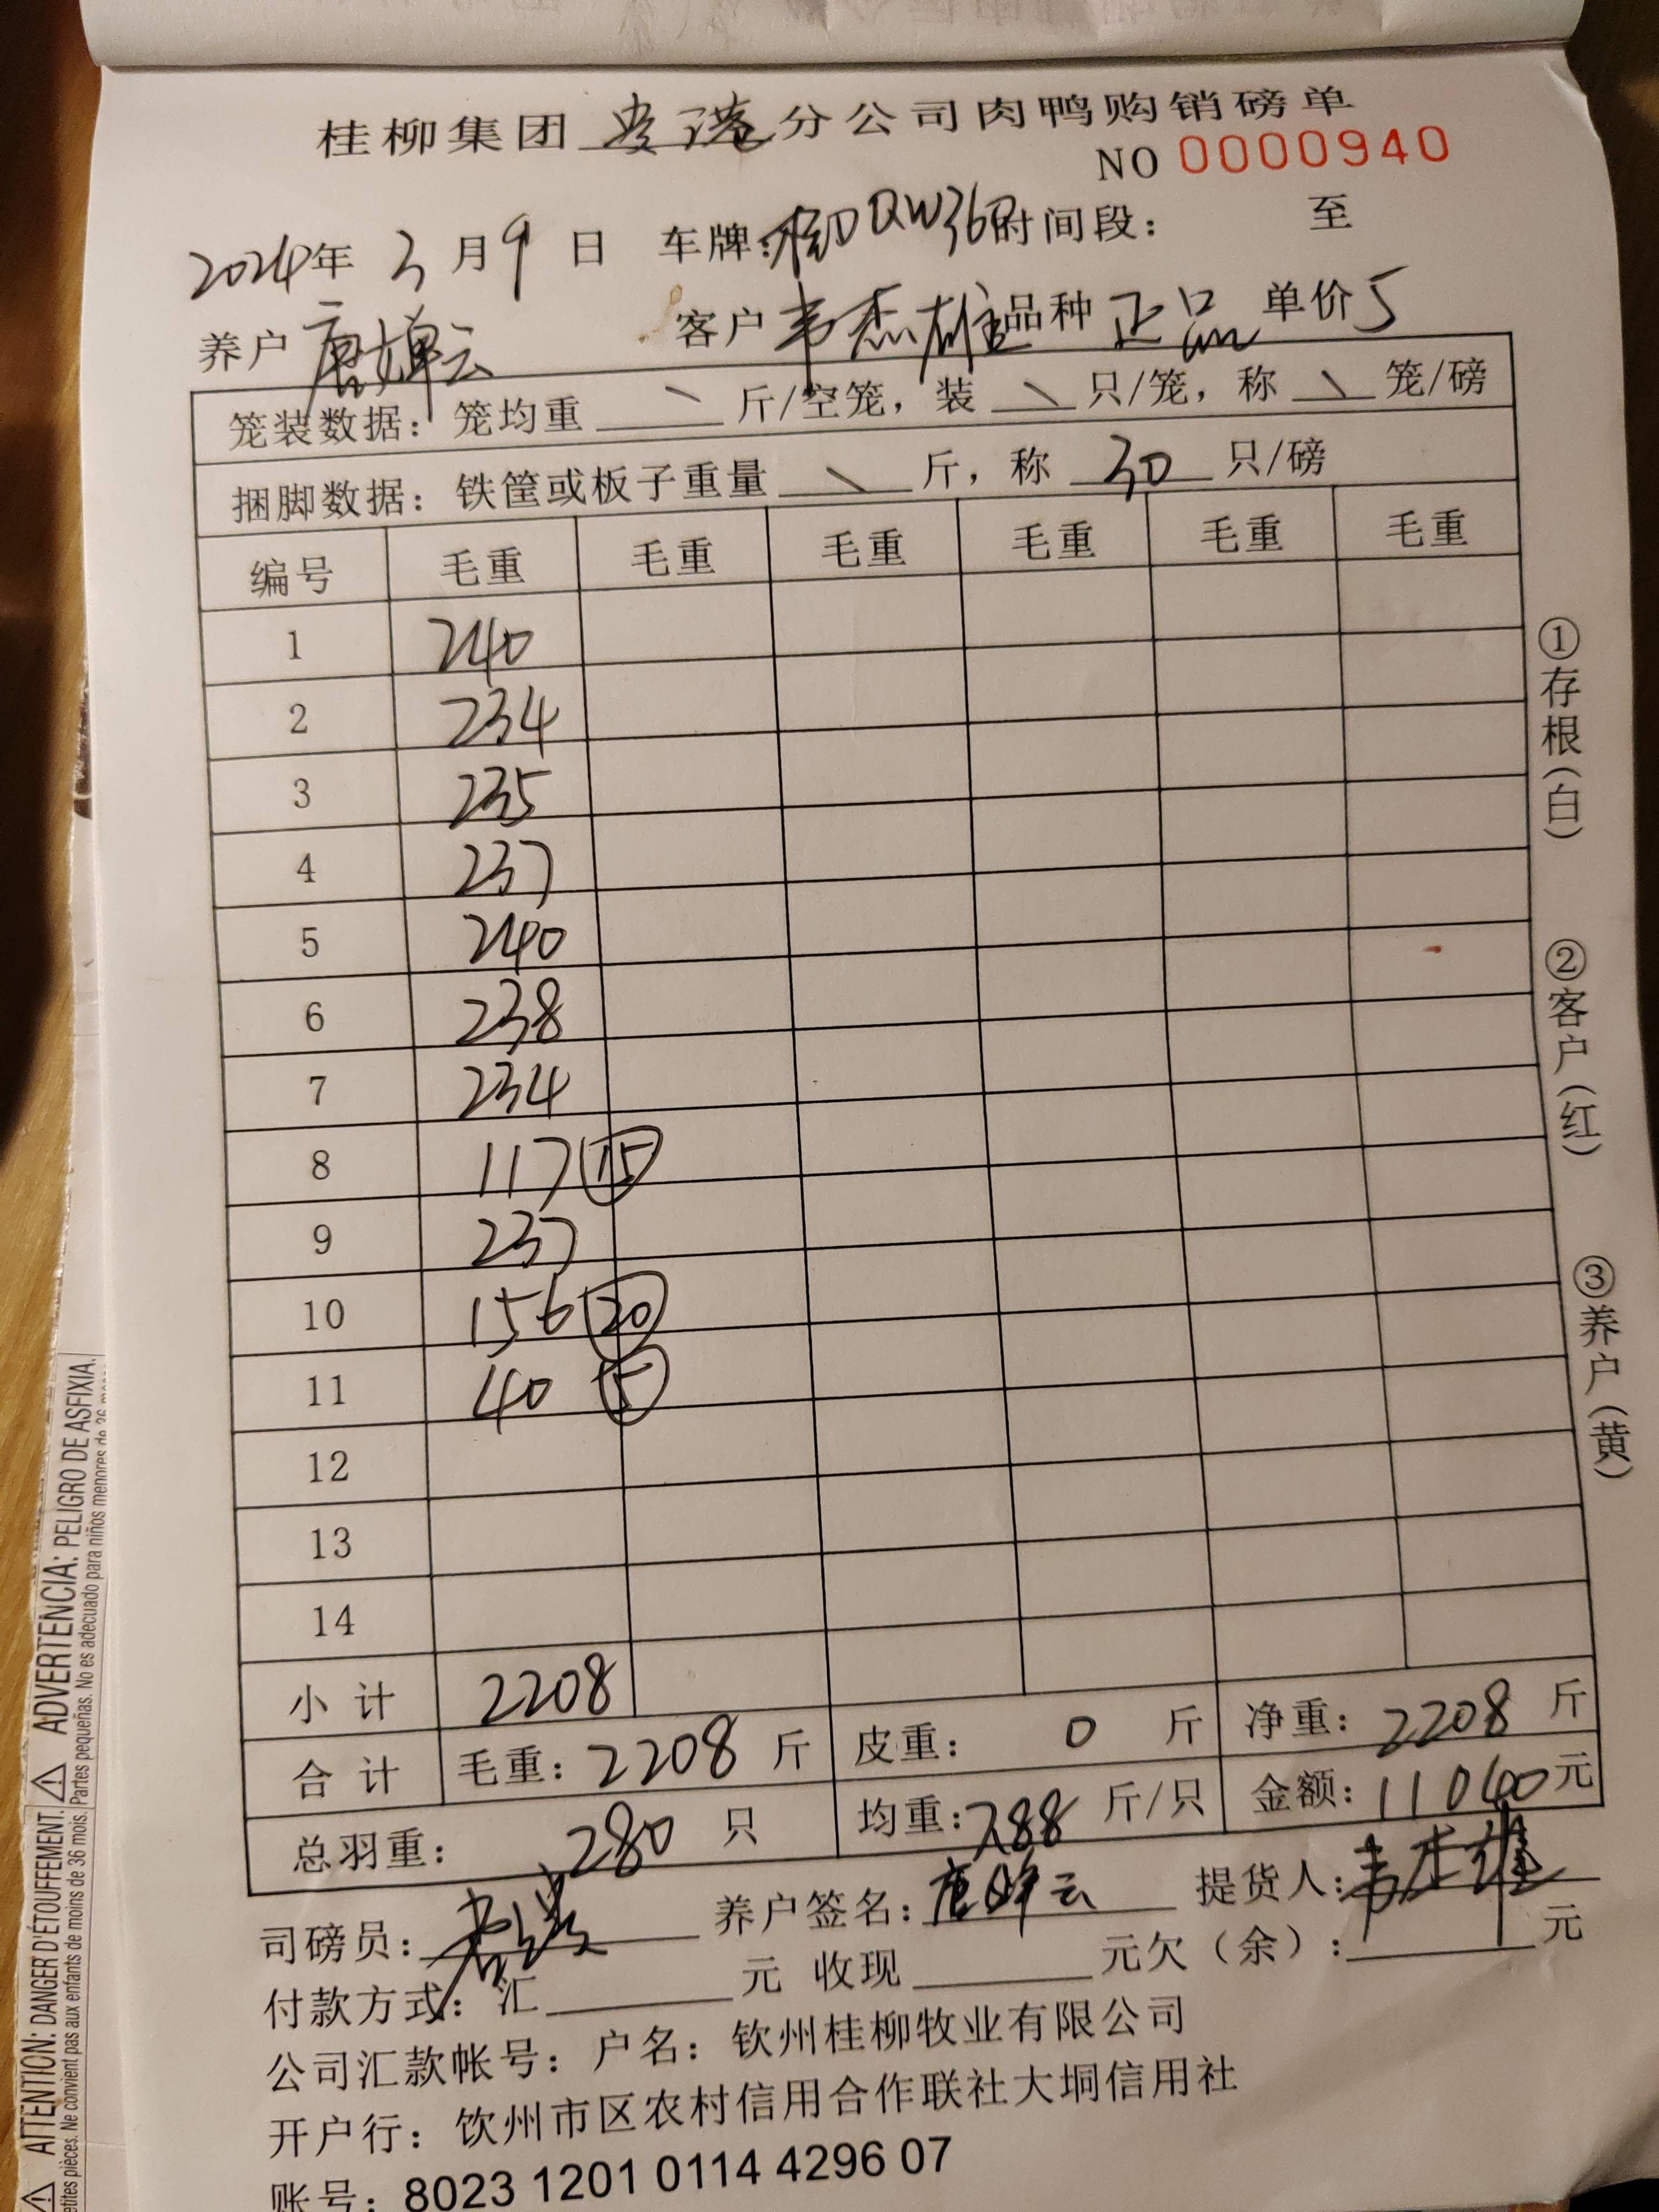 桂柳集团 贵港 分公司肉鸭购销磅单
NO 0000940
2024年 3 月 9 日 车牌: 时间段: 至
养户 客户 韦杰雄 品种 正品 单价 5
笼装数据: 笼均重 \ 斤/空笼, 装 \ 只/笼, 称 \ 笼/磅
捆脚数据: 铁筐或板子重量 \ 斤, 称 30 只/磅
编号 毛重 毛重 毛重 毛重 毛重 毛重
1 240
2 234
3 235
4 237
5 240
6 238
7 234
8 117 15
9 237
10 156 20
11 40 5
12
13
14
小 计 2208
合 计 毛重: 2208 斤 皮重: 0 斤 净重: 2208 斤
总羽重: 280 只 均重: 788 斤/只 金额: 11040 元
①存根(白)
②客户(红)
③养户(黄)
司磅员: 养户签名: 提货人: 韦杰雄
付款方式: 汇 元 收现 元欠(余): 元
公司汇款帐号: 户名: 钦州桂柳牧业有限公司
开户行: 钦州市区农村信用合作联社大垌信用社
账号: 8023 1201 0114 4296 07
ATTENTION: DANGER D'ÉTOUFFEMENT. ADVERTENCIA: PELIGRO DE ASFIXIA.
petites pièces. Ne convient pas aux enfants de moins de 36 mois. Partes pequeñas. No es adecuado para niños menores de 36